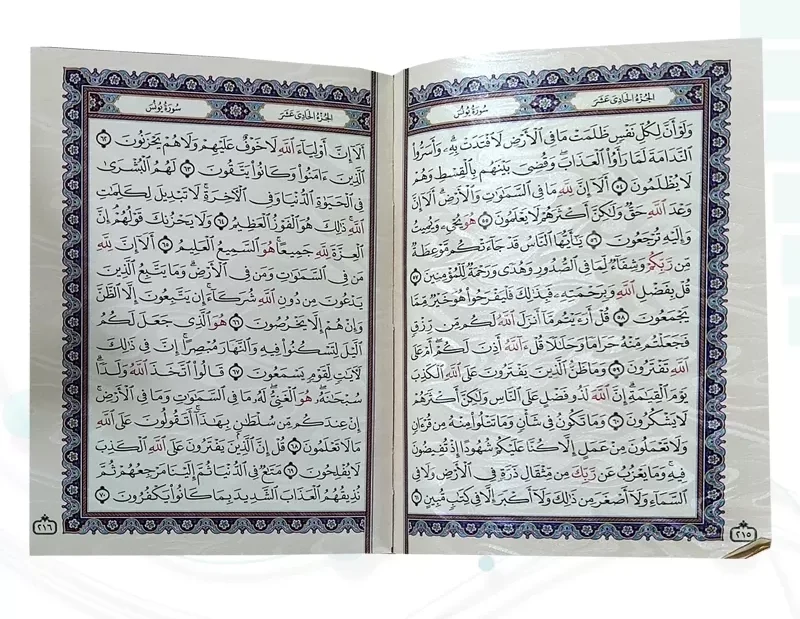 الجزء الحادي عشر
سورة يونس
وَلَوْ أَنَّ لِكُلِّ نَفْسٍ ظَلَمَتْ مَا فِي الْأَرْضِ لَافْتَدَتْ بِهِۦ وَأَسَرُّوا
النَّدَامَةَ لَمَّا رَأَوُا الْعَذَابَ وَقُضِيَ بَيْنَهُم بِالْقِسْطِ وَهُمْ
لَا يُظْلَمُونَ ٥٤ أَلَا إِنَّ لِلَّهِ مَا فِي السَّمَٰوَٰتِ وَالْأَرْضِ أَلَا إِنَّ
وَعْدَ اللَّهِ حَقٌّ وَلَٰكِنَّ أَكْثَرَهُمْ لَا يَعْلَمُونَ ٥٥ هُوَ يُحْيِۦ وَيُمِيتُ
وَإِلَيْهِ تُرْجَعُونَ ٥٦ يَٰأَيُّهَا النَّاسُ قَدْ جَاءَتْكُم مَّوْعِظَةٌ
مِّن رَّبِّكُمْ وَشِفَاءٌ لِّمَا فِي الصُّدُورِ وَهُدًى وَرَحْمَةٌ لِّلْمُؤْمِنِينَ ٥٧
قُلْ بِفَضْلِ اللَّهِ وَبِرَحْمَتِهِۦ فَبِذَٰلِكَ فَلْيَفْرَحُوا هُوَ خَيْرٌ مِّمَّا
يَجْمَعُونَ ٥٨ قُلْ أَرَءَيْتُم مَّا أَنزَلَ اللَّهُ لَكُم مِّن رِّزْقٍ
فَجَعَلْتُم مِّنْهُ حَرَامًا وَحَلَٰلًا قُلْ ءَاللَّهُ أَذِنَ لَكُمْ أَمْ عَلَى
اللَّهِ تَفْتَرُونَ ٥٩ وَمَا ظَنُّ الَّذِينَ يَفْتَرُونَ عَلَى اللَّهِ الْكَذِبَ
يَوْمَ الْقِيَٰمَةِ إِنَّ اللَّهَ لَذُو فَضْلٍ عَلَى النَّاسِ وَلَٰكِنَّ أَكْثَرَهُمْ
لَا يَشْكُرُونَ ٦٠ وَمَا تَكُونُ فِي شَأْنٍ وَمَا تَتْلُوا مِنْهُ مِن قُرْءَانٍ
وَلَا تَعْمَلُونَ مِنْ عَمَلٍ إِلَّا كُنَّا عَلَيْكُمْ شُهُودًا إِذْ تُفِيضُونَ
فِيهِ وَمَا يَعْزُبُ عَن رَّبِّكَ مِن مِّثْقَالِ ذَرَّةٍ فِي الْأَرْضِ وَلَا فِي
السَّمَاءِ وَلَا أَصْغَرَ مِن ذَٰلِكَ وَلَا أَكْبَرَ إِلَّا فِي كِتَٰبٍ مُّبِينٍ ٦١
٢١٥
الجزء الحادي عشر
سورة يونس
أَلَا إِنَّ أَوْلِيَاءَ اللَّهِ لَا خَوْفٌ عَلَيْهِمْ وَلَا هُمْ يَحْزَنُونَ ٦٢
الَّذِينَ ءَامَنُوا وَكَانُوا يَتَّقُونَ ٦٣ لَهُمُ الْبُشْرَىٰ
فِي الْحَيَوٰةِ الدُّنْيَا وَفِي الْءَاخِرَةِ لَا تَبْدِيلَ لِكَلِمَٰتِ
اللَّهِ ذَٰلِكَ هُوَ الْفَوْزُ الْعَظِيمُ ٦٤ وَلَا يَحْزُنكَ قَوْلُهُمْ إِنَّ
الْعِزَّةَ لِلَّهِ جَمِيعًا هُوَ السَّمِيعُ الْعَلِيمُ ٦٥ أَلَا إِنَّ لِلَّهِ
مَن فِي السَّمَٰوَٰتِ وَمَن فِي الْأَرْضِ وَمَا يَتَّبِعُ الَّذِينَ
يَدْعُونَ مِن دُونِ اللَّهِ شُرَكَاءَ إِن يَتَّبِعُونَ إِلَّا الظَّنَّ
وَإِنْ هُمْ إِلَّا يَخْرُصُونَ ٦٦ هُوَ الَّذِي جَعَلَ لَكُمُ
الَّيْلَ لِتَسْكُنُوا فِيهِ وَالنَّهَارَ مُبْصِرًا إِنَّ فِي ذَٰلِكَ
لَءَايَٰتٍ لِّقَوْمٍ يَسْمَعُونَ ٦٧ قَالُوا اتَّخَذَ اللَّهُ وَلَدًا
سُبْحَٰنَهُۥ هُوَ الْغَنِيُّ لَهُۥ مَا فِي السَّمَٰوَٰتِ وَمَا فِي الْأَرْضِ
إِنْ عِندَكُم مِّن سُلْطَٰنٍ بِهَٰذَا أَتَقُولُونَ عَلَى اللَّهِ
مَا لَا تَعْلَمُونَ ٦٨ قُلْ إِنَّ الَّذِينَ يَفْتَرُونَ عَلَى اللَّهِ الْكَذِبَ
لَا يُفْلِحُونَ ٦٩ مَتَٰعٌ فِي الدُّنْيَا ثُمَّ إِلَيْنَا مَرْجِعُهُمْ ثُمَّ
نُذِيقُهُمُ الْعَذَابَ الشَّدِيدَ بِمَا كَانُوا يَكْفُرُونَ ٧٠
٢١٦